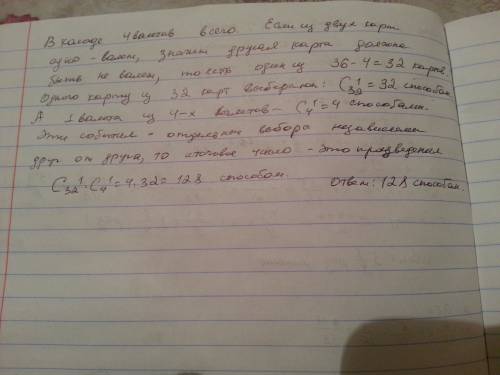 В колоде 4 валетов всего. Если из двух карт
одна - валет, значит другая карта должна
быть не валет, то есть один из 36-4=32 карты.
Одного карту из 32 карт выбирали: C¹₃₂=32 способам.
А 1 валета из 4-х валетов - C¹₄=4 способами.
Эти события - отдельные выбора независимы
друг от друга, то итоговое число - это произведения
C¹₃₂·C¹₄=4·32=128 способам.
Ответ: 128 способам.